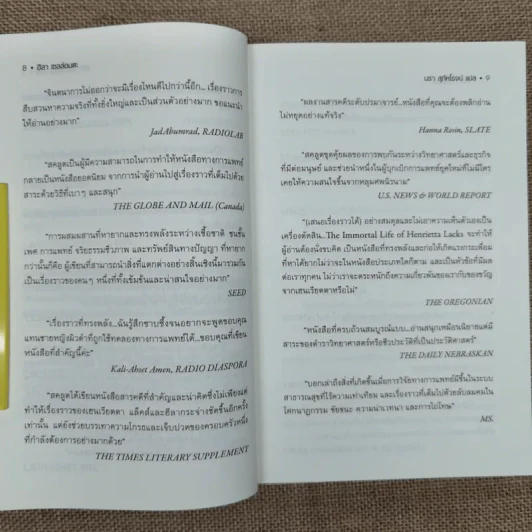 8 • ฮีลา เซลล์อมตะ
“จินตนาการไม่ออกว่าจะมีเรื่องไหนดีไปกว่านี้อีก... เรื่องราวการ
สืบสวนหาความจริงที่ทั้งยิ่งใหญ่และเป็นส่วนตัวอย่างมาก ขอแนะนำ
ให้อ่านอย่างมาก”
Jad Abumrad, RADIOLAB
“สคลูตเป็นผู้มีความสามารถในการทำให้หนังสือทางการแพทย์
กลายเป็นหนังสือยอดนิยม จากการนำผู้อ่านไปสู่เรื่องราวที่เต็มไปด้วย
สาระด้วยวิธีที่เบาๆ และสนุก”
THE GLOBE AND MAIL (Canada)
“การผสมผสานที่หายากและทรงพลังระหว่างเชื้อชาติ ชนชั้น
เพศ การแพทย์ จริยธรรมชีวภาพ และทรัพย์สินทางปัญญา ที่หายาก
กว่านั้นก็คือ ผู้เขียนที่สามารถนำสิ่งที่แตกต่างอย่างสิ้นเชิงนี้มารวมกัน
เป็นเรื่องราวของคนๆ หนึ่งที่ทั้งเข้มข้นและน่าสนใจอย่างมาก”
SEED
“เรื่องราวที่ทรงพลัง...ฉันรู้สึกซาบซึ้งจนอยากจะพูดขอบคุณ
แทนชายหญิงผิวดำที่ถูกใช้ทดลองทางการแพทย์ได้...ขอบคุณที่เขียน
หนังสือที่สำคัญนี้ค่ะ”
Kali-Ahset Amen, RADIO DIASPORA
“สคลูตได้เขียนหนังสือสารคดีที่สำคัญและน่าคิดซึ่งไม่เพียงแต่
ทำให้เรื่องราวของเฮนเรียตตา แล็คส์และฮีลากระจ่างชัดขึ้นอีกครั้ง
เท่านั้น แต่ยังช่วยบรรเทาความโกรธและเจ็บปวดของครอบครัวหนึ่ง
ที่กำลังต้องการอย่างมากด้วย”
THE TIMES LITERARY SUPPLEMENT
นรา สุภัคโรจน์ แปล • 9
“ผลงานสารคดีระดับปรมาจารย์...หนังสือที่คุณจะต้องพลิกอ่าน
ไม่หยุดอย่างแท้จริง”
Hanna Rosin, SLATE
“สคลูตขุดคุ้ยผลของการพบกันระหว่างวิทยาศาสตร์และธุรกิจ
ที่มีต่อมนุษย์ และช่วยนำหนึ่งในผู้บุกเบิกการแพทย์ยุคใหม่ที่ไม่มีใคร
เคยให้ความสนใจขึ้นจากหลุมศพนิรนาม”
U.S. NEWS & WORLD REPORT
“(เสนอเรื่องราวได้) อย่างสมดุลและไม่เอาความเห็นตัวเองเป็น
เครื่องตัดสิน...The Immortal Life of Henrietta Lacks จะทำให้
ผู้อ่านต้องนั่งขบคิด เป็นหนังสือที่ทรงพลังและก่อให้เกิดแรงกระเพื่อม
ที่หาได้ยากไม่ว่าจะในหนังสือประเภทใดก็ตาม และเป็นหัวข้อที่มีผล
ต่อเราทุกคน ไม่ว่าเราจะตระหนักถึงความเกี่ยวพันของเรากับของขวัญ
จากเฮนเรียตตาหรือไม่”
THE OREGONIAN
“หนังสือที่ครบถ้วนสมบูรณ์แบบ...อ่านสนุกเหมือนนิยายแต่มี
สาระของตำราวิทยาศาสตร์หรือชีวประวัติที่เป็นประวัติศาสตร์”
THE DAILY NEBRASKAN
“บอกเล่าถึงสิ่งที่เกิดขึ้นเมื่อการวิจัยทางการแพทย์มีขึ้นในระบบ
สาธารณสุขที่ไร้ความเท่าเทียม และเรื่องราวที่เต็มไปด้วยลมหายใจ
โศกนาฏกรรม ชัยชนะ ความน่าเวทนา และการไถ่โทษ”
MS.